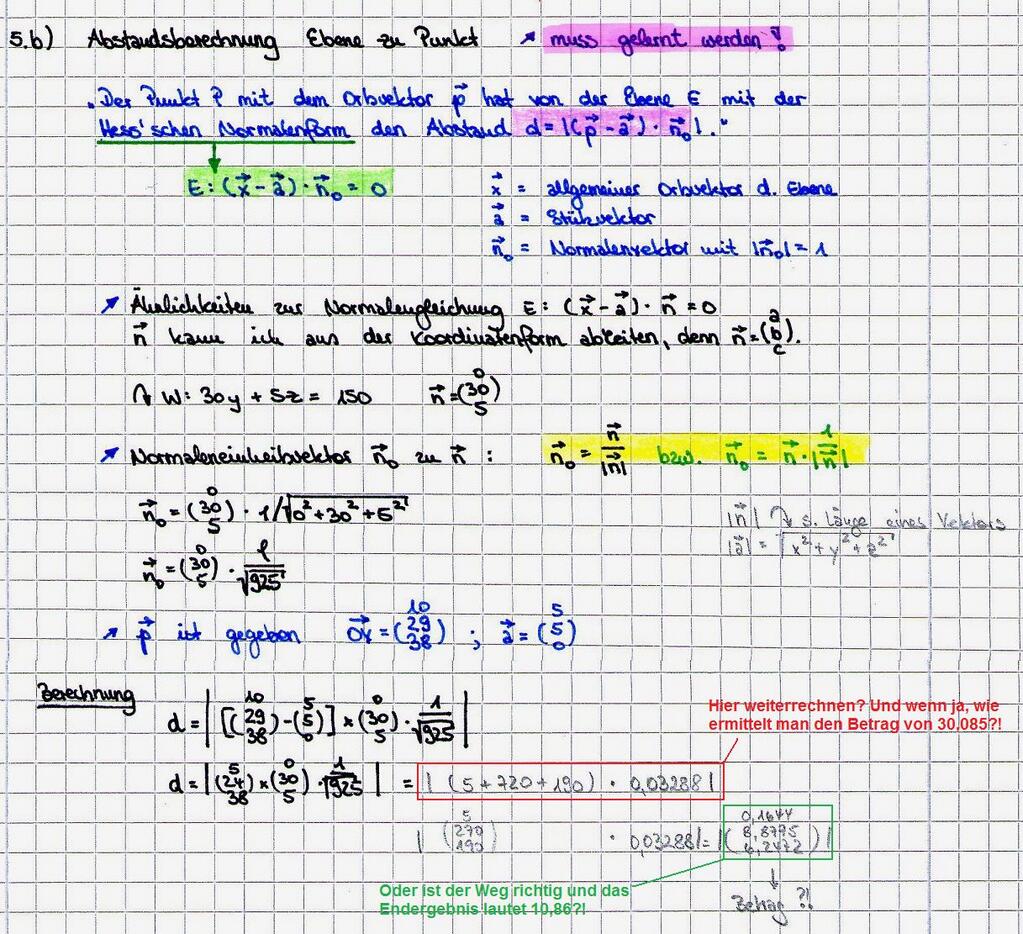 5.b) Abstandsberechnung Ebene zu Punkt ↗ muss gelernt werden!
"Der Punkt P mit dem Ortsvektor p⃗ hat von der Ebene E mit der
Hess'schen Normalenform den Abstand d = |(p⃗ - a⃗) · n⃗₀|."
E: (x⃗ - a⃗) · n⃗₀ = 0
x⃗ = allgemeiner Ortsvektor d. Ebene
a⃗ = Stützvektor
n⃗₀ = Normalenvektor mit |n⃗₀| = 1
↗ Ähnlichkeiten zur Normalengleichung E: (x⃗ - a⃗) · n⃗ = 0
n⃗ kann ich aus der Koordinatenform ableiten, denn n⃗ = (a b c).
↷ W: 30y + 5z = 150 n⃗ = (0 30 5)
↗ Normaleneinheitsvektor n⃗₀ zu n⃗ : n⃗₀ = n⃗/|n⃗| bzw. n⃗₀ = n⃗ · 1/|n⃗|
n⃗₀ = (0 30 5) · 1/√(0² + 30² + 5²)
|n⃗| ↷ s. Länge eines Vektors
|a⃗| = √(x² + y² + z²)
n⃗₀ = (0 30 5) · 1/√925
↗ p⃗ ist gegeben OK⃗ = (10 29 38) ; a⃗ = (5 5 0)
Berechnung
d = | [(10 29 38) - (5 5 0)] × (0 30 5) · 1/√925 |
Hier weiterrechnen? Und wenn ja, wie
ermittelt man den Betrag von 30,085?!
d = | (5 24 38) × (0 30 5) · 1/√925 | = | (5 + 720 + 190) · 0,03288 |
| (5 270 190) · 0,03288 | = | (0,1644 8,8775 6,2472) |
Oder ist der Weg richtig und das
Endergebnis lautet 10,86?!
Betrag ?!